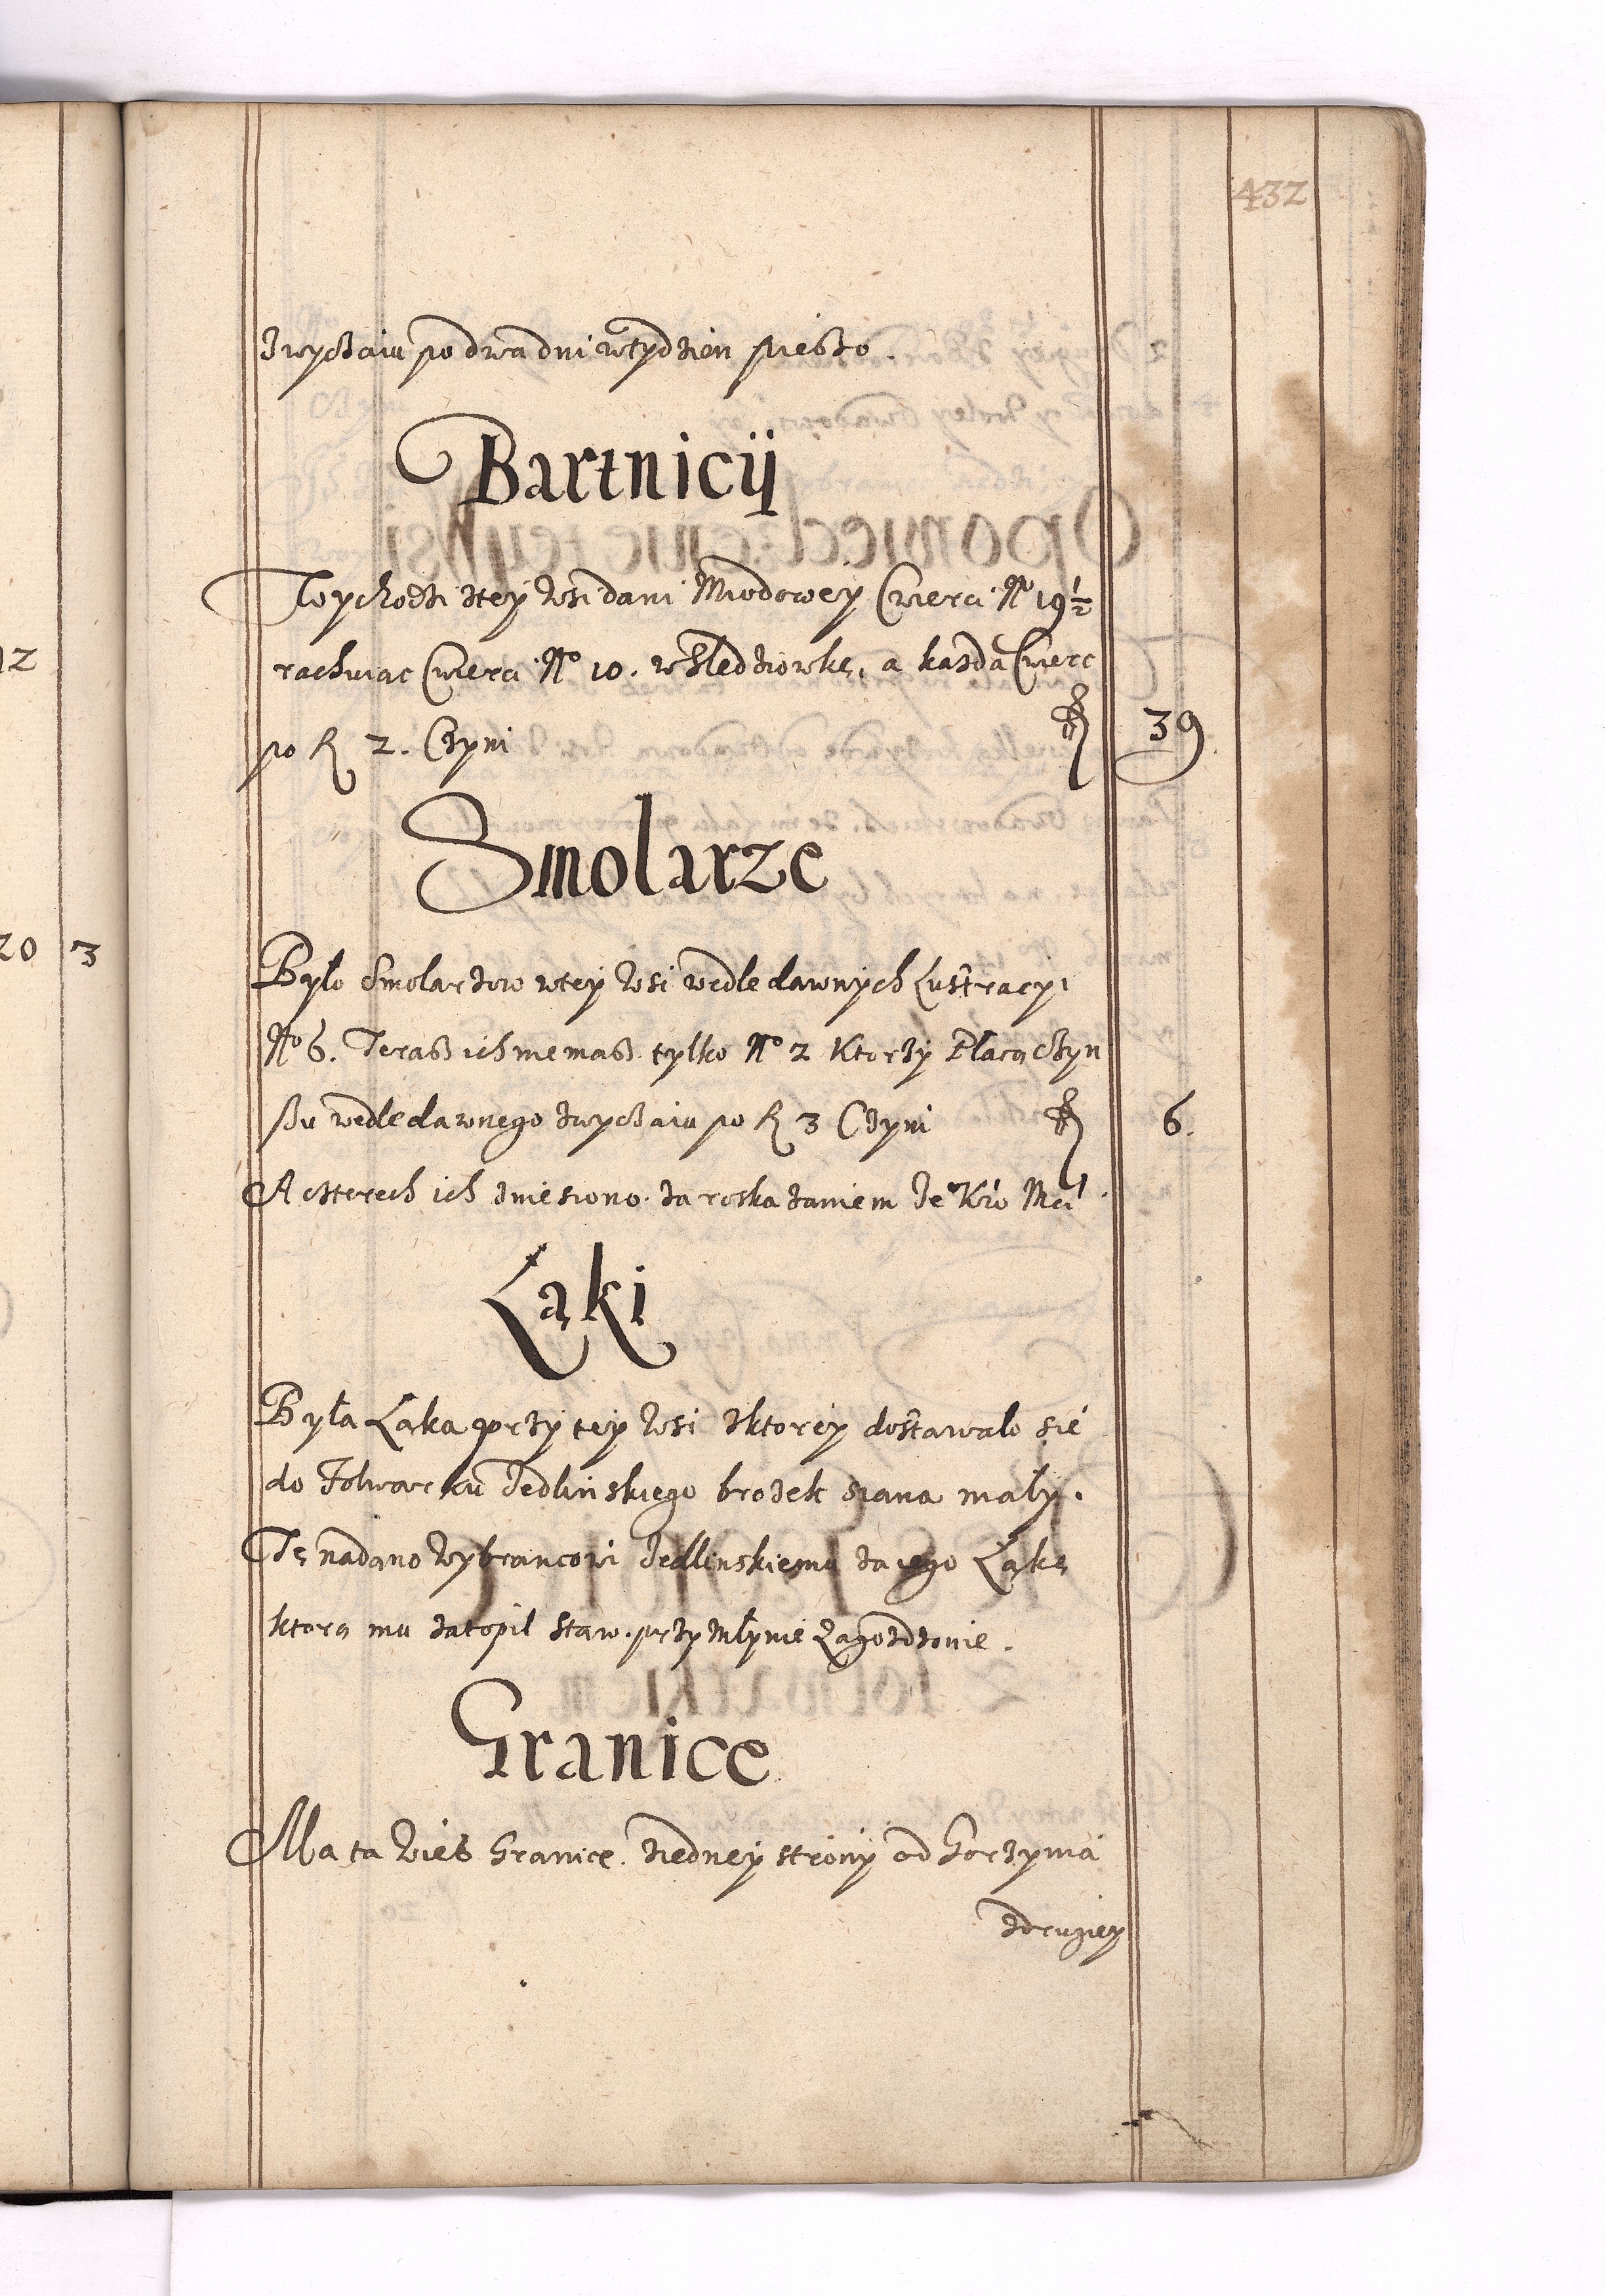 432
zwyczaiu po dwa dni wtydzien pieszo.
Bartnicij
Wychodzi ztey Wsi dani Miodowey Cwierci No 19½
rachuiąc Cwierci No 10. w Sledziowkę, a kazda Cwierc
po fl 2. Czyni fl 39
Smolarze
Bylo Smolarzow wtey Wsi wedle dawnych Lustracyi
No 6. Terasz ich niemasz tylko No 2 Ktorzy Placą Czyn
szu wedle dawnego zwyczaiu po fl 3 Czyni fl 6.
A czterech ich zniesiono za roskazaniem Je Kro Mci
Łąki
Była Łąka przy tey Wsi zktorey dostawało się
do Folwarku Jedlinskiego brozek siana mały.
Tę nadano Wybrancowi Jedlinskiemu za iego Łąkę
ktorą mu zatopił staw przy Młynie Zagozdzonie.
Granice
Ma ta Wies Granice ziedney strony od Gorzynia
zdrugiey
12
20 3